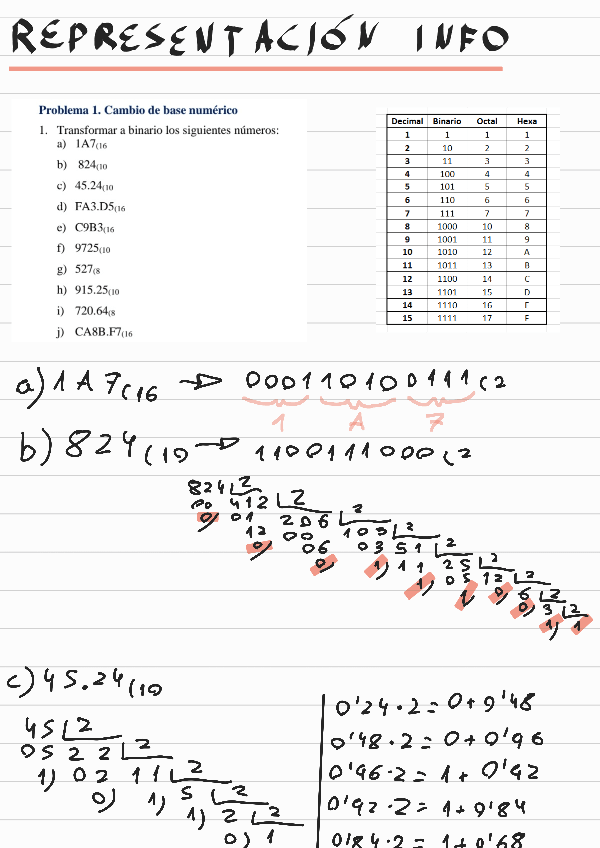 REPRESENTACIÓN INFO
Problema 1. Cambio de base numérico
1. Transformar a binario los siguientes números:
a) 1A7(16
b) 824(10
c) 45.24(10
d) FA3.D5(16
e) C9B3(16
f) 9725(10
g) 527(8
h) 915.25(10
i) 720.64(8
j) CA8B.F7(16
Decimal Binario Octal Hexa
1 1 1 1
2 10 2 2
3 11 3 3
4 100 4 4
5 101 5 5
6 110 6 6
7 111 7 7
8 1000 10 8
9 1001 11 9
10 1010 12 A
11 1011 13 B
12 1100 14 C
13 1101 15 D
14 1110 16 E
15 1111 17 F
a) 1A7(16 → 000110100111(2
1 A 7
b) 824(10 → 1100111000(2
824 2
00 412 2
0 01 206 2
12 00 103 2
0 06 03 51 2
0 1) 11 25 2
1) 05 12 2
1 0) 6 2
0) 3 2
1) 1
c) 45.24(10
45 2
05 22 2
1) 02 11 2
0) 1) 5 2
1) 2 2
0) 1
0'24·2=0+0'48
0'48·2=0+0'96
0'96·2=1+0'92
0'92·2=1+0'84
0'84·2=1+0'68